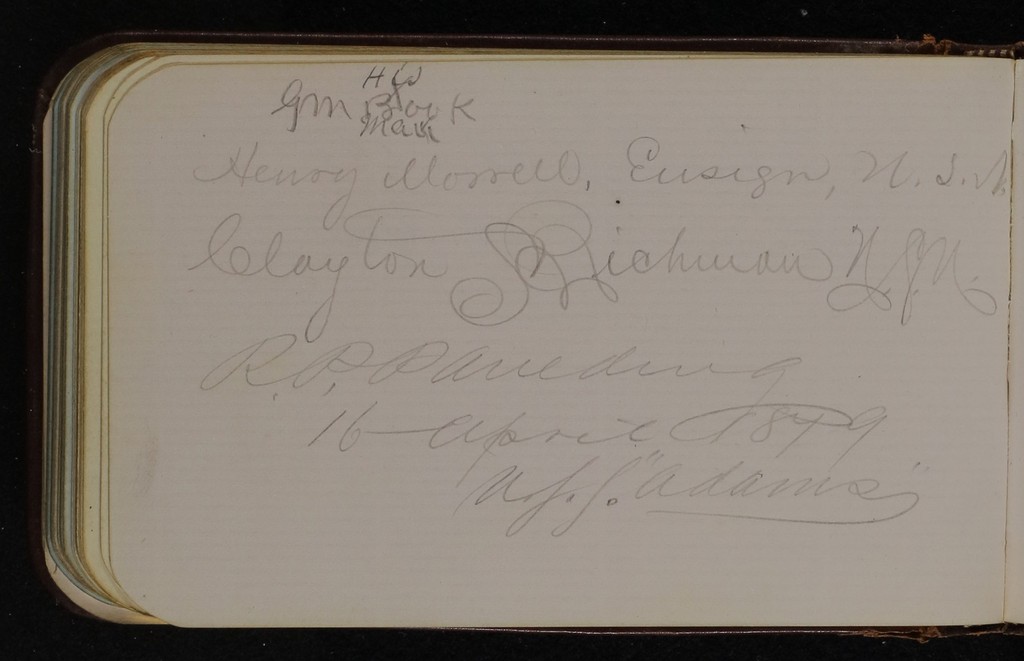 H W
GM Book
Main
Henry Morrell, Ensign, U.S.N.
Clayton S Richman U.S.N.
R. P. Paulding
16 April 1879
U.S.S. "Adams"